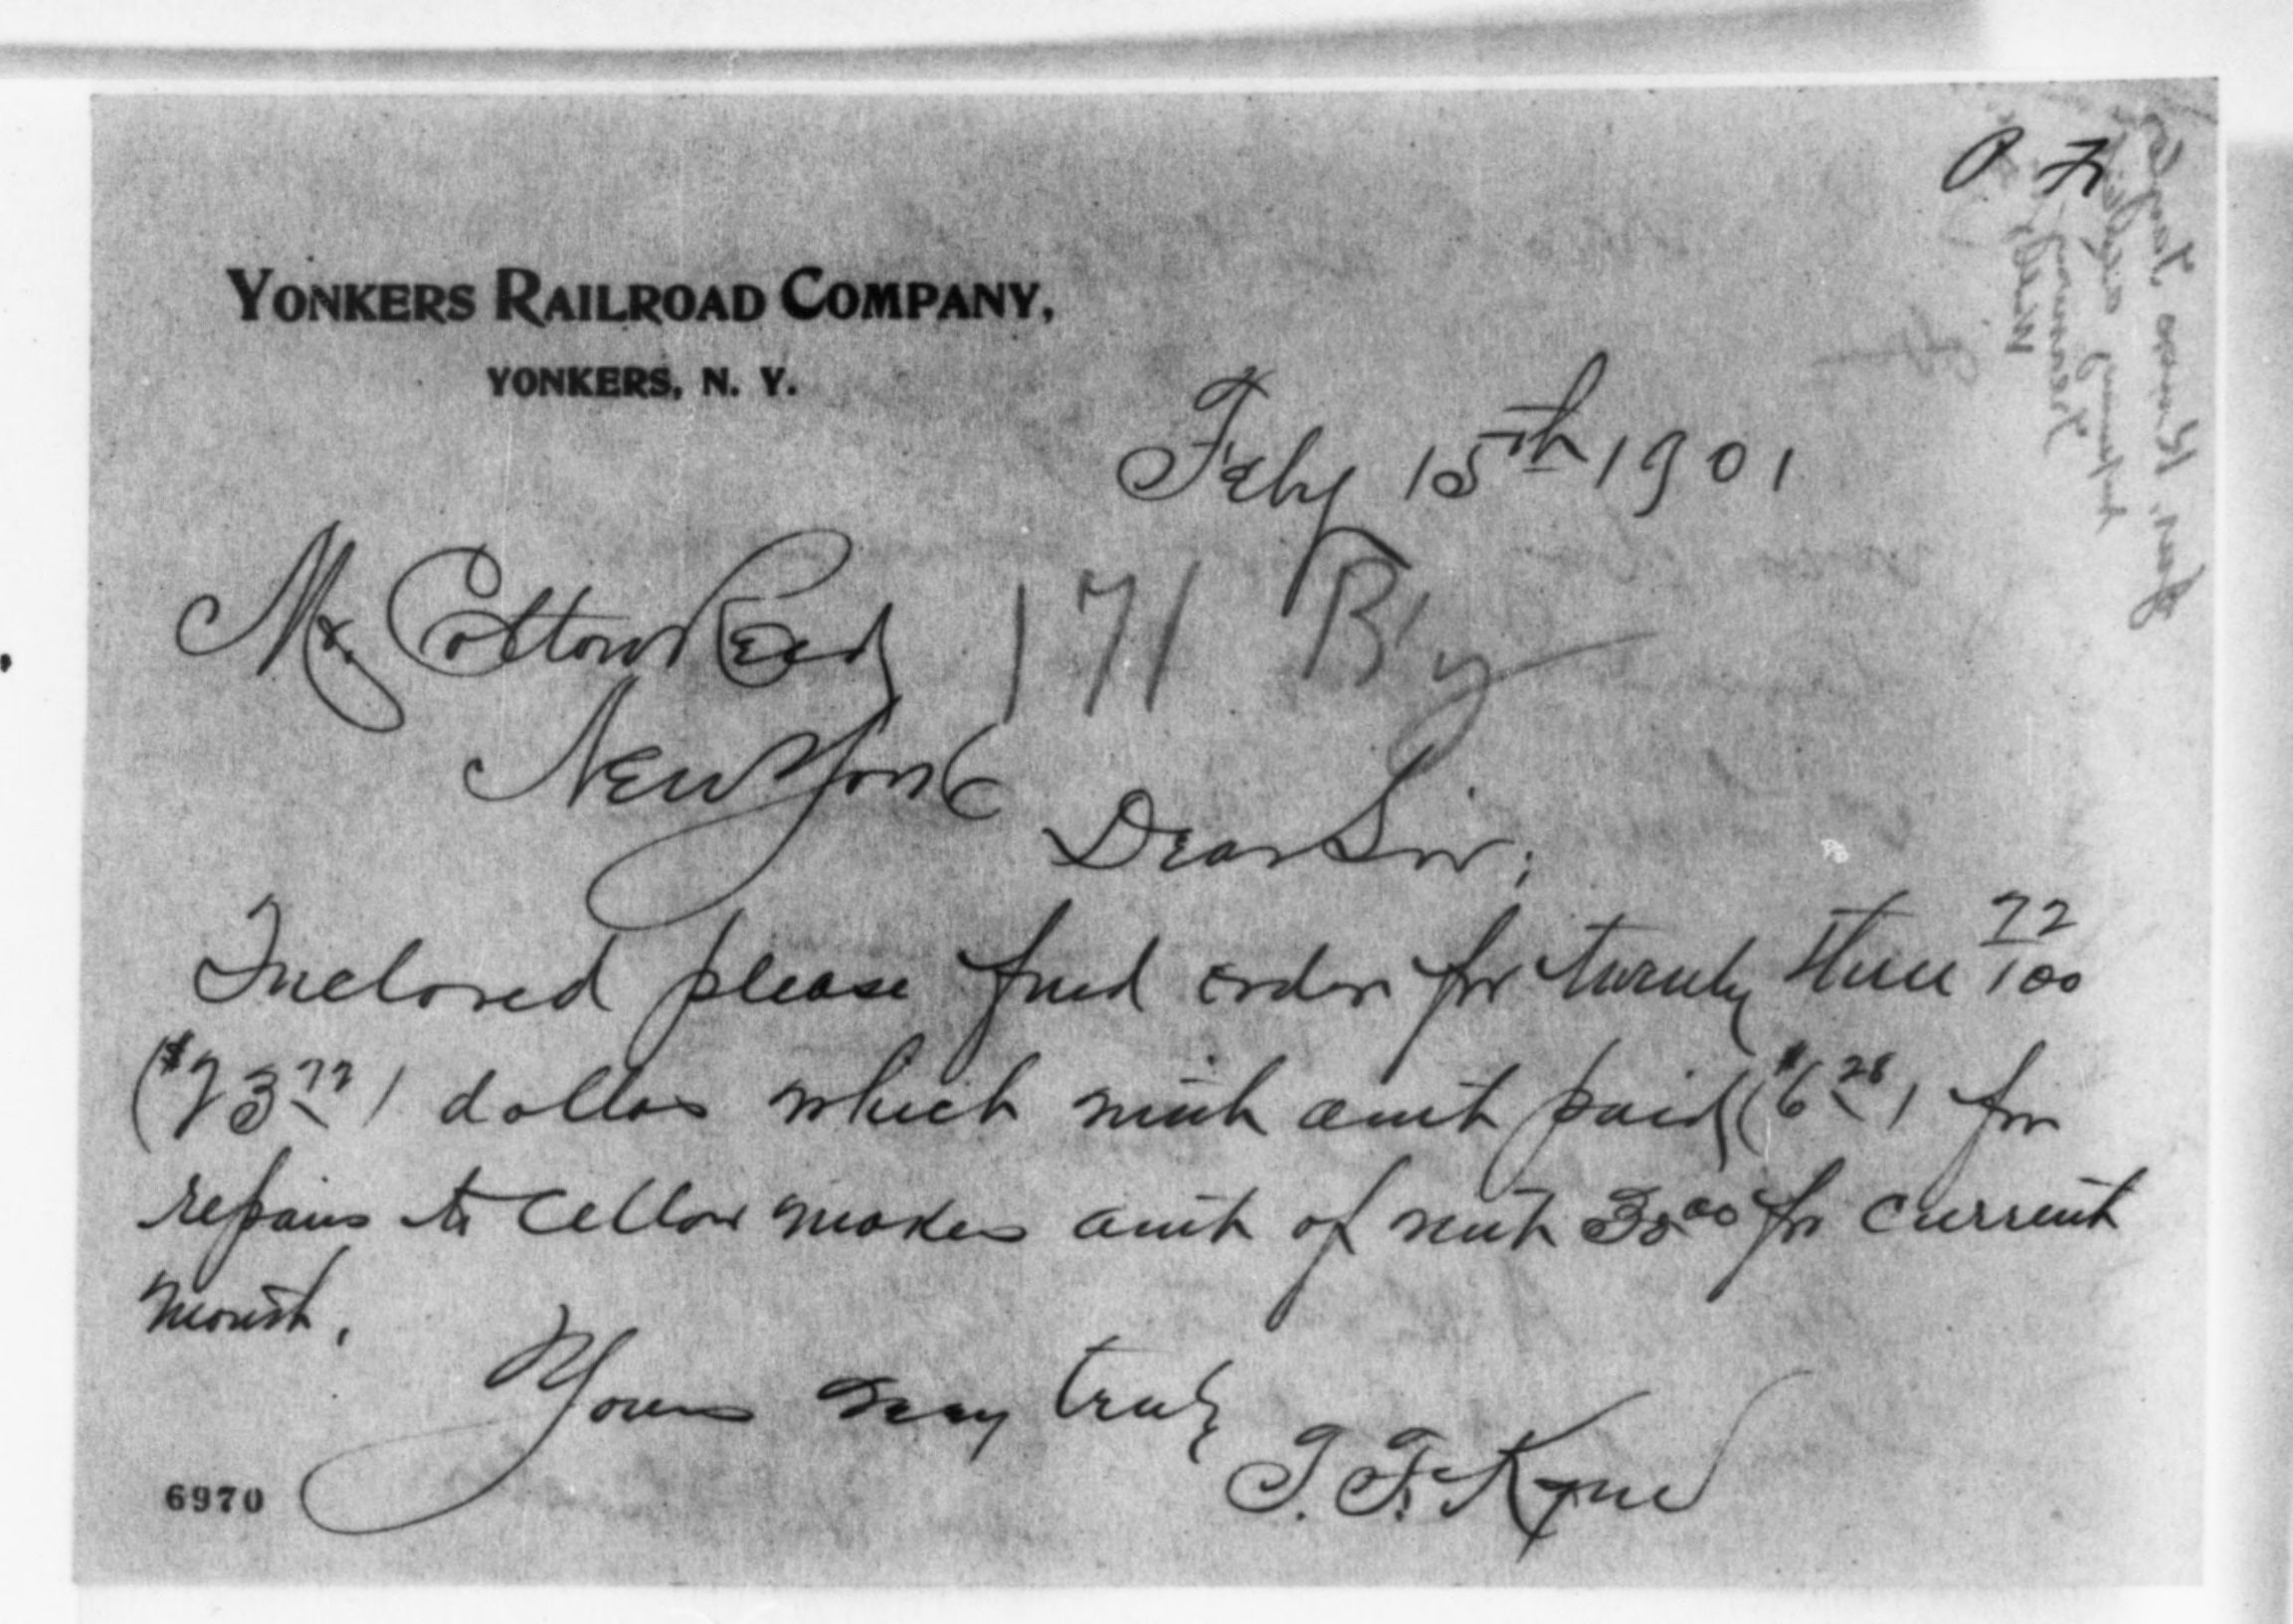 O K
YONKERS RAILROAD COMPANY,
YONKERS, N. Y.
Feby 15th 1901
Mr. Cotton Reed
171 By
New York
Dear Sir;
Inclosed please find order for twenty three 72/100
($23 72) dollars which with amt paid ($6 28) for
repairs to cellar makes amt of rent 30 00 for current
month.
Yours very truly
T. F. Kyne
6970